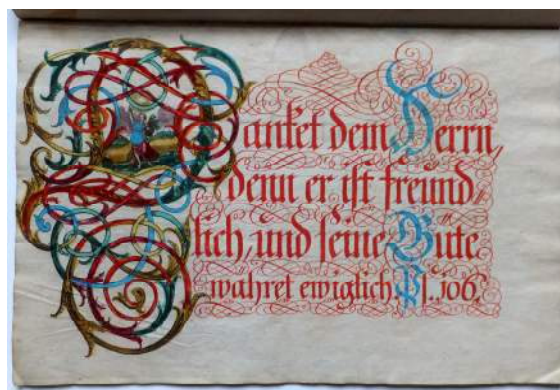 Danket dem Herrn,
denn er ist freund,
lich, und seine Güte
währet ewiglich. Ps. 106.